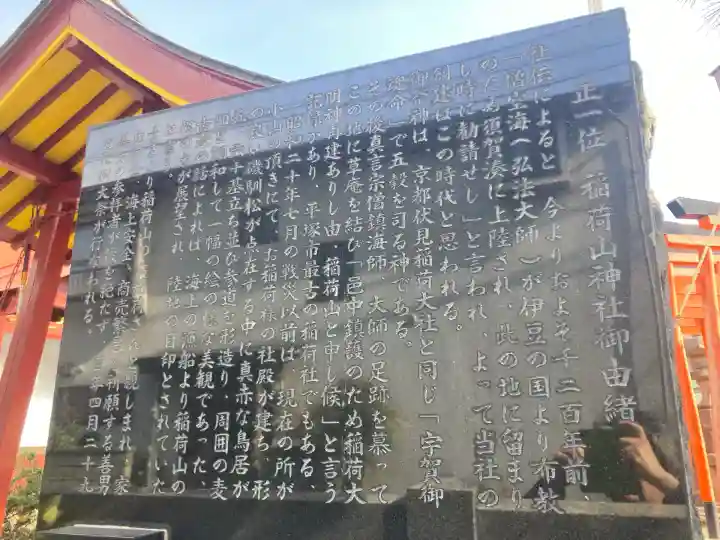 正一位 稲荷山神社御由緒
社伝によると 今よりおよそ千二百年前、
「僧空海(弘法大師)が伊豆の国より布教
のため須賀湊に上陸され 此の地に留まり
し時に勧請せし」と言われ、よって当社の
創建はこの時代と思われる。
御祭神は、京都伏見稲荷大社と同じ「宇賀御
魂命」で五穀を司る神である。
その後真言宗僧鎮海師 大師の足跡を慕って
この地に草庵を結び「邑中鎮護のため稲荷大
明神再建ありし由 稲荷山と申し候」と言う
記録があり、平塚市最古の稲荷社でもある。
昭和二十年七月の戦災以前は 現在の所が
小山の頂きにて お稲荷様の社殿が建ち、形
の良い磯馴松が点在する中に真赤な鳥居が
数十基立ち並び参道を形造り、周囲の麦
畑と和して一幅の絵の様な美観であった、
の話によれば、海上の漁船より稲荷山の
が展望され、陸地の目印とされていた
り稲荷山の 親しまれ 家
海上安全、商売繁 祈願する善男
参拝者が を絶たず、 年四月二十九
大祭が行われる。